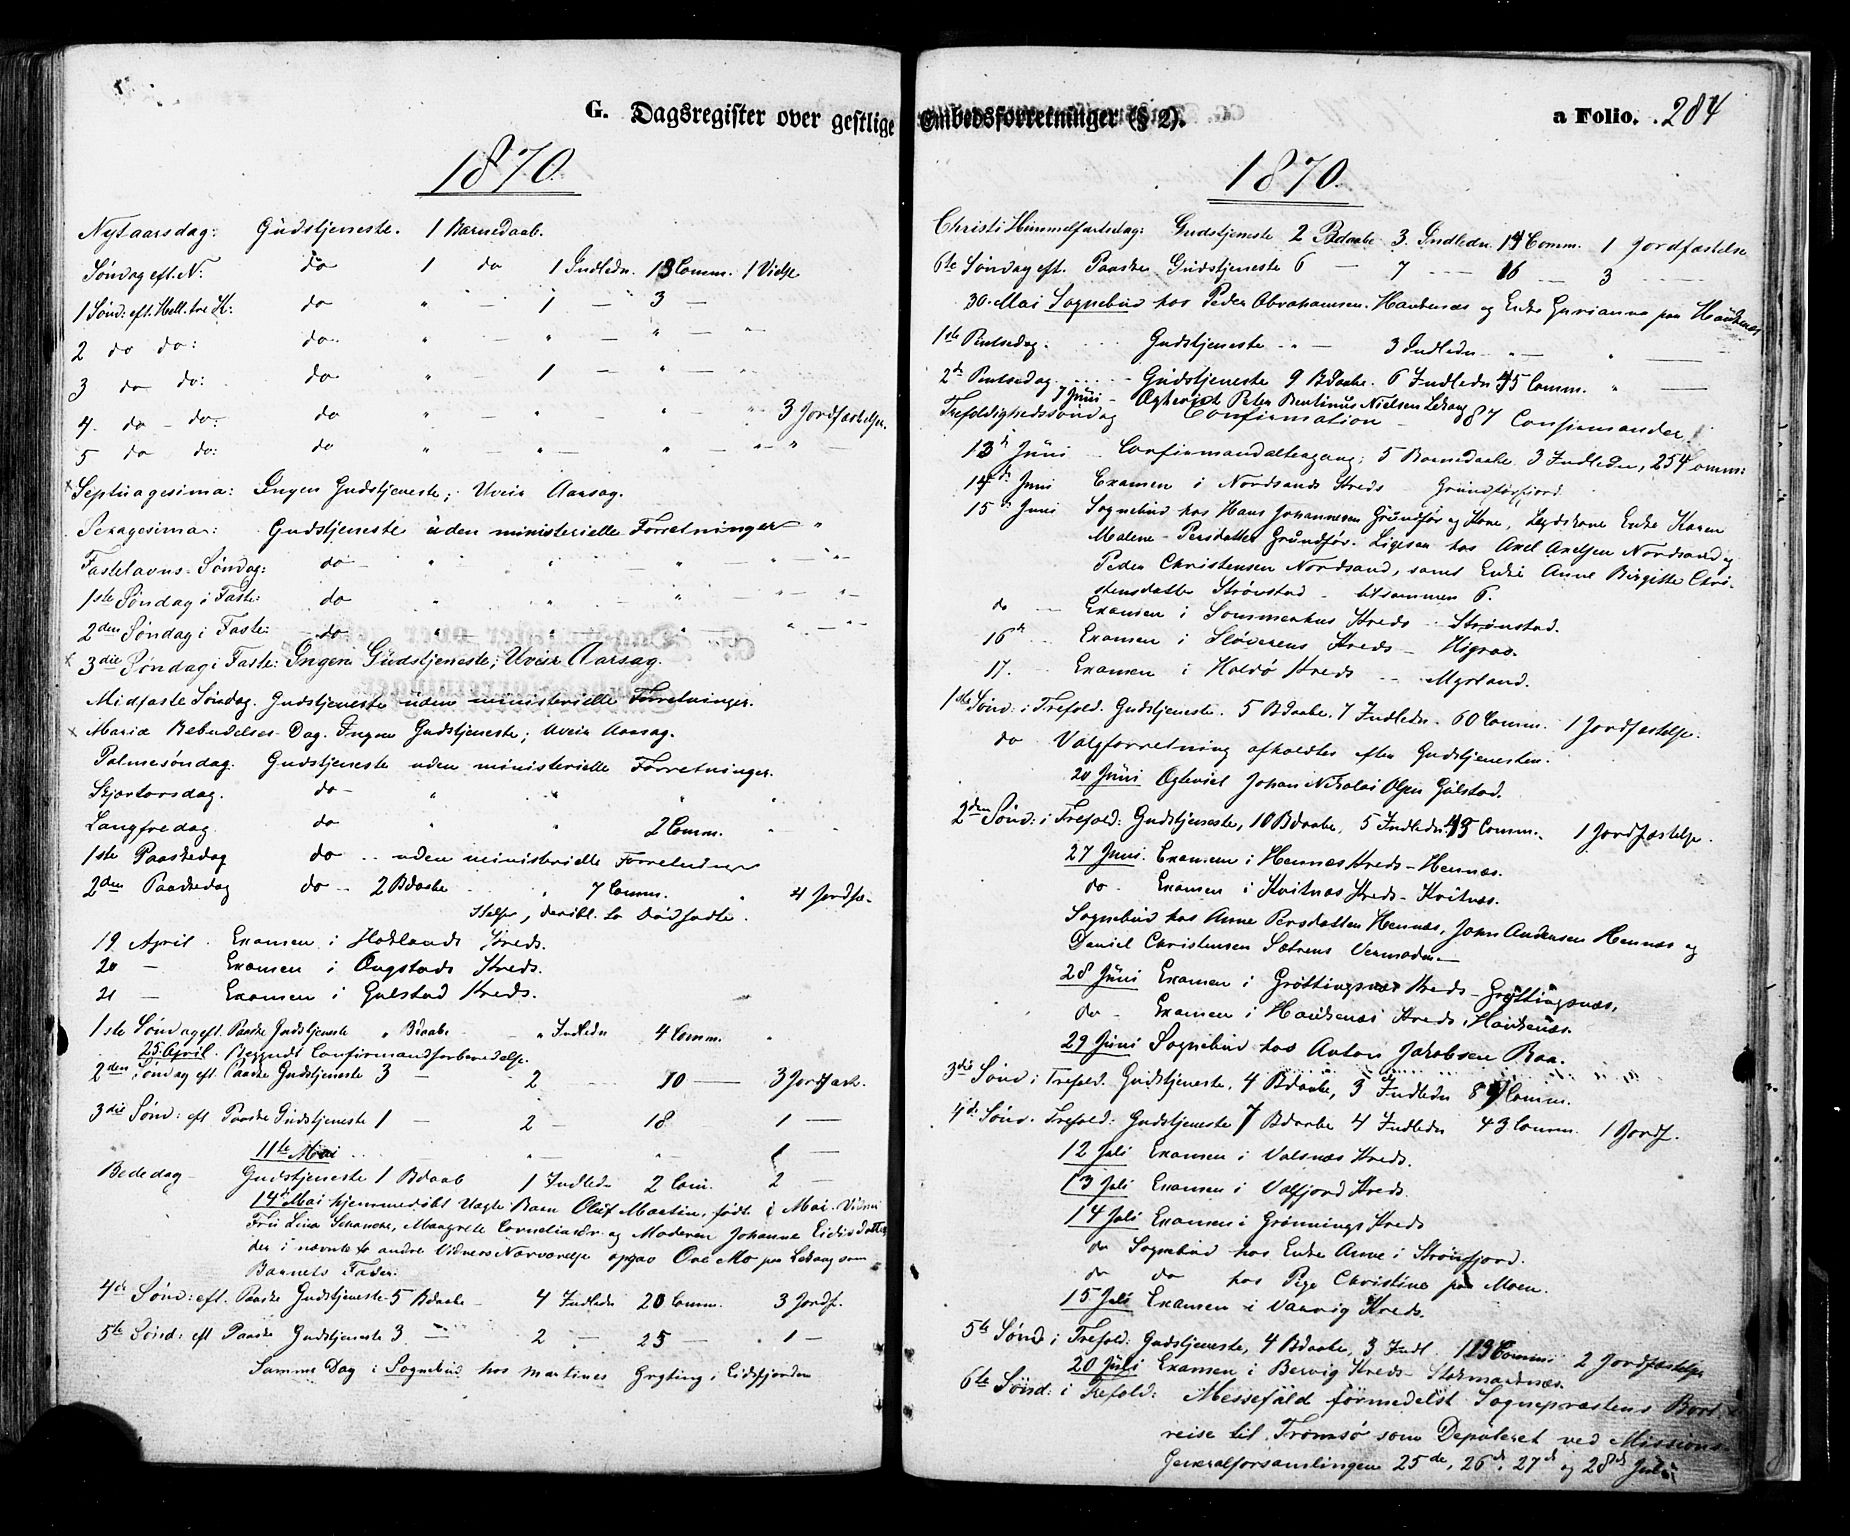 G. Dagsregister over gestlige
1870.
Nytaarsdag: Gudstjeneste. 1 Barnedaab.
Søndag eft. N: do 1 do 1 Indledn. 13 Comm. 1 Vielse
1 Sønd: eft. Hell. tre K: do " — 1 — 3 —
2 do do: do " — " — " — "
3 do do: do " 1 — " — "
4. do - do: do " — " — " — " 3 Jordfæstelser.
5 do do: do " — " — " — " — " —
x Septuagesima: Ingen Gudstjeneste; Uveir Aarsag.
Sexagesima: Gudstjeneste uden ministerielle Forretninger "
Fastelavns-Søndag: do — " " " " "
1ste Søndag i Faste: do " " " " "
2den Søndag i Faste: do " " " " "
x 3die Søndag i Faste: Ingen Gudstjeneste; Uveir Aarsag.
Midfaste Søndag. Gudstjeneste uden ministerielle Forretninger.
x Mariæ Bebudelses-Dag. Ingen Gudstjeneste; Uveir Aarsag.
Palmesøndag. Gudstjeneste uden ministerielle Forretninger.
Skjærtorsdag. do — " " " "
Langfredag. do " " 2 Comm. "
1ste Paaskedag do .. uden ministerielle Forretninger
2den Paaskedag do — 2 Bdaabe — " 7 Comm. " 4 Jordfæ-
stelser, deribl. to Dødfødte.
19 April. Examen i Hoklands Kreds.
20 — Examen i Ongstads Kreds.
21 — Examen i Gulstad Kreds.
1ste Søndag eft. Paaske Gudstjeneste " Bdaabe — " Indledn 4 Comm. "
25 April. Begyndt Confirmandforberedelse.
2den Søndag eft. Paaske Gudstjeneste 3 — 2 — 10 — 3 Jordfæst.
3die Sønd: eft Paaske Gudstjeneste 1 — 2 — 18 1 —
11te Mai .. " " 1 —
Bededag — Gudstjeneste 1 Bdaab 1 Indledn 2 Com. 2 —
14de Mai hjemmedøbt Uægte Barn Oluf Martin, født i Mai. Vidner
Frü Lina Schancke, Margrete Corneliusdr. og Moderen Johanne Eidisdatter,
der i nævnte to andre Vidners Nærværelse opgav Ove Mo paa Lekang som
Barnets Fader.
4de Sønd: eft. Paaske Gudstjeneste 5 Bdaabe — 4 Indledn 20 Comm. 3 Jordf.
5te Sønd: eft Paaske Gudstjeneste 3 — 2 — 25 — 1 —
Samme Dag i Sognebud hos Martines Grytting i Eidsfjorden
Embedsforretninger (§ 2).
a Folio. 284
1870.
Christi Himmelfartsdag: Gudstjeneste 2 Bdaabe 3. Indledn. 14 Comm. 1 Jordfæstelse
6te Søndag eft. Paaske Gudstjeneste 6 — 7 — 16 — 3 —
30. Mai Sognebud hos Peder Abrahamsen Haukenæs og Enke Gurianna paa Haukenæs
1ste Pintsedag. Gudstjeneste — " — 3 Indledn — " — " —
2den Pintsedag Gudstjeneste 9 Bdaabe. 6 Indledn 45 Comm. " —
7 Juni — Ægteviet Peter Bentinus Nielsen Lekang
Trefoldighedssøndag Confirmation — 87 Confirmander.
13de Juni — Confirmandaltergang; 5 Barnedaabe 3 Indledn, 254 Comm:
14de Juni Examen i Nordsands Kreds — Grundførfjord.
15de Juni Sognebud hos Hans Johannesen Grundfør og Kone, Lægdskone Enke Karen
Malene Persdatter Grundfør. Ligesaa hos Axel Axelsen Nordsand og
Peder Christensen Nordsand, samt Enke Anne Birgitte Chri-
stensdatter Strønstad — tilsammen 6.
do — Examen i Sommerhus Kreds — Strønstad.
16de — Examen i Sløverens Kreds — Higrav.
17. — Examen i Holdø Kreds — Myrland.
1ste Sønd: i Trefold. Gudstjeneste. 5 Bdaabe. 7 Indledn. 60 Comm. 1 Jordfæstelse.
do — Valgforretning afholdtes efter Gudstjenesten.
20 Juni Ægteviet Johan Nikolai Olsen Gulstad.
2den Sønd: i Trefold: Gudstjeneste, 10 Bdaabe, 5 Indledn. 45 Comm. 1 Jordfæstelse.
27 Juni. Examen i Hennæs Kreds — Hennæs.
do — Examen i Kvitnæs Kreds — Kvitnæs.
Sognebud hos Anne Persdatter Hennæs, John Andersen Hennæs og
Daniel Christensen Sætrens
28 Juni Examen i Grøttingsnæs Kreds — Grøttingsnæs,
do — Examen i Haukenæs Kreds, Haukenæs.
29 Juni Sognebud hos Anton Jakobsen Roa.
3die Sønd: i Trefold. Gudstjeneste, 4 Bdaabe, 3 Indledn 89 Comm.
4de Sønd. Trefold: Gudstjeneste 7 Bdaabe 4 Indledn 43 Comm. 1 Jordf.
12 Juli Examen i Valsnæs Kreds.
13 Juli Examen i Valfjord Kreds.
14 Juli Examen i Grønnings Kreds
do Sognebud hos Enke Anne i Strønfjord.
do do hos Pige Christine paa Moen.
15 Juli Examen i Vaarvig Kreds.
5te Sønd i Trefold: Gudstjeneste, 4 Bdaabe, 3 Indl. 113 Comm: 2 Jordfæstelser
20 Juli Examen i Bervig Kreds — Stokmarknæs.
6te Sønd: i Trefold: Messefald formedelst Sognepræstens Bort-
reise til Tromsø som Deputeret ved Missions-
Generalforsamlingen 25de, 26de, 27de og 28de Juli